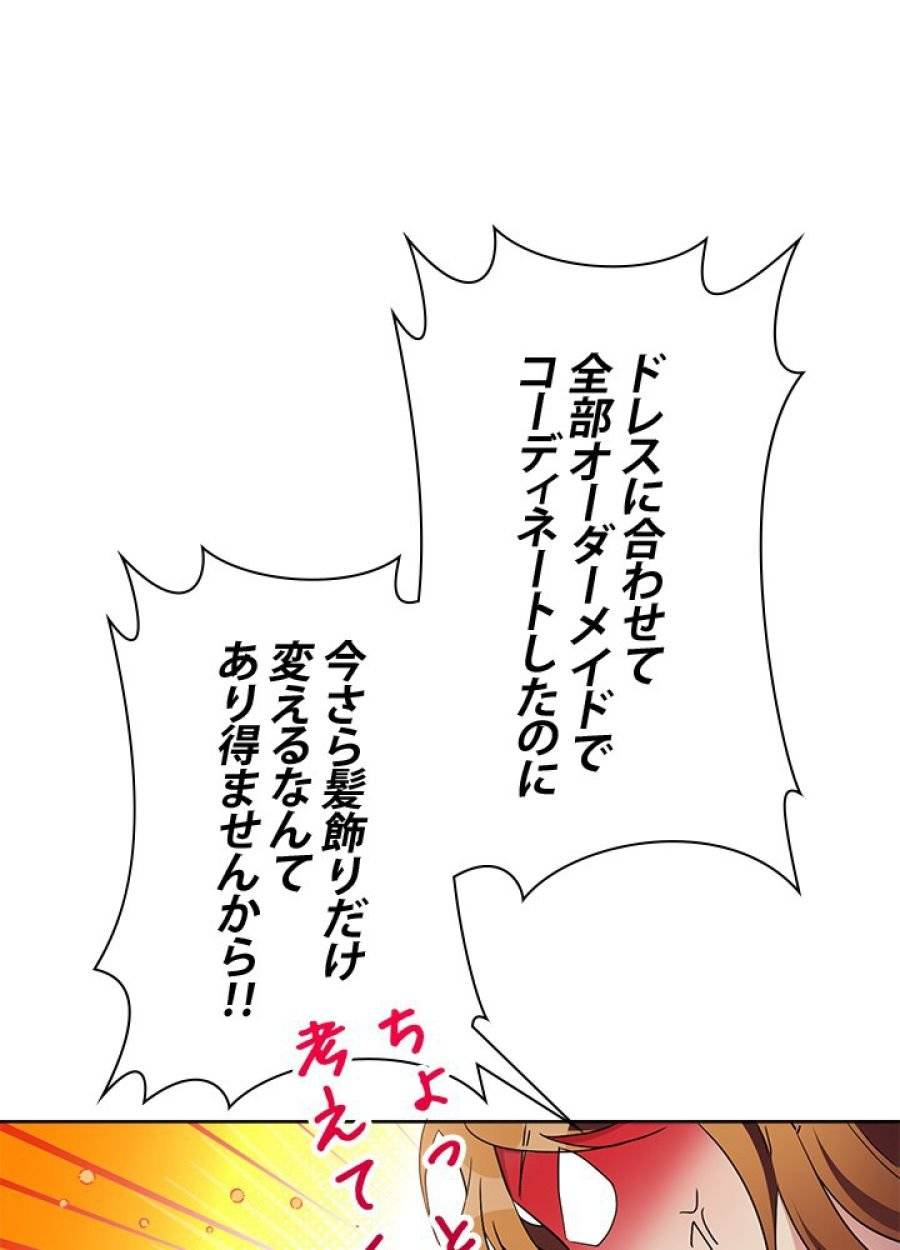 ドレスに合わせて
全部オーダーメイドで
コーディネートしたのに
今さら髪飾りだけ
変えるなんて
あり得ませんから!!
ちょっと
考えて